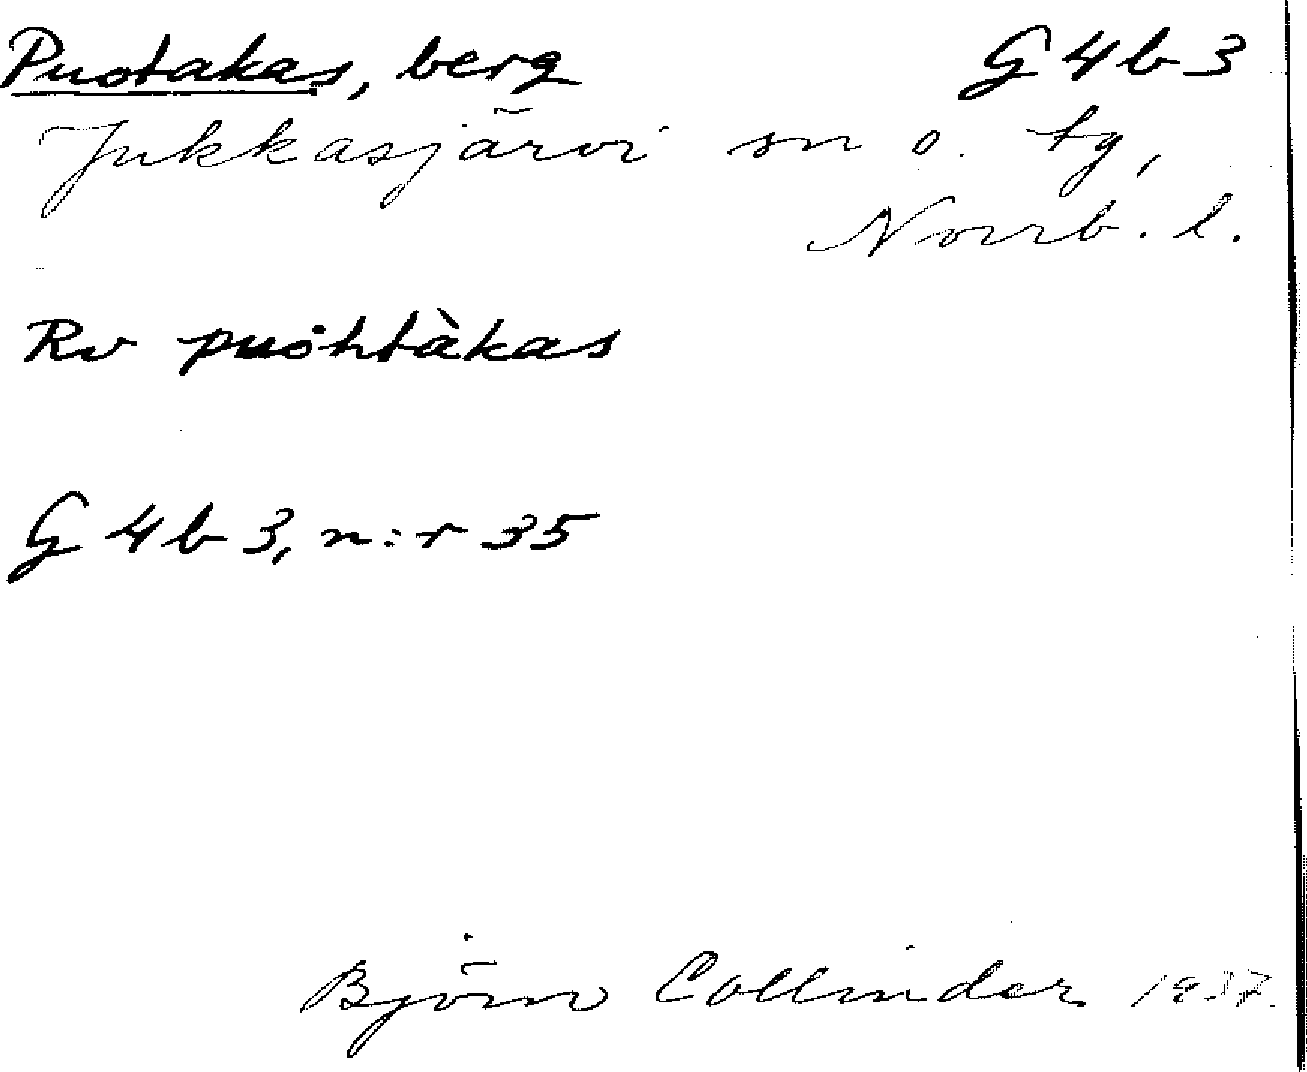 Puotakas, berg G 4 b 3
Jukkasjärvi sn o. tg,
Norrb. l.
Rv puȯhtàkas
G 4 b 3, n:r 35
Björn Collinder 1937.